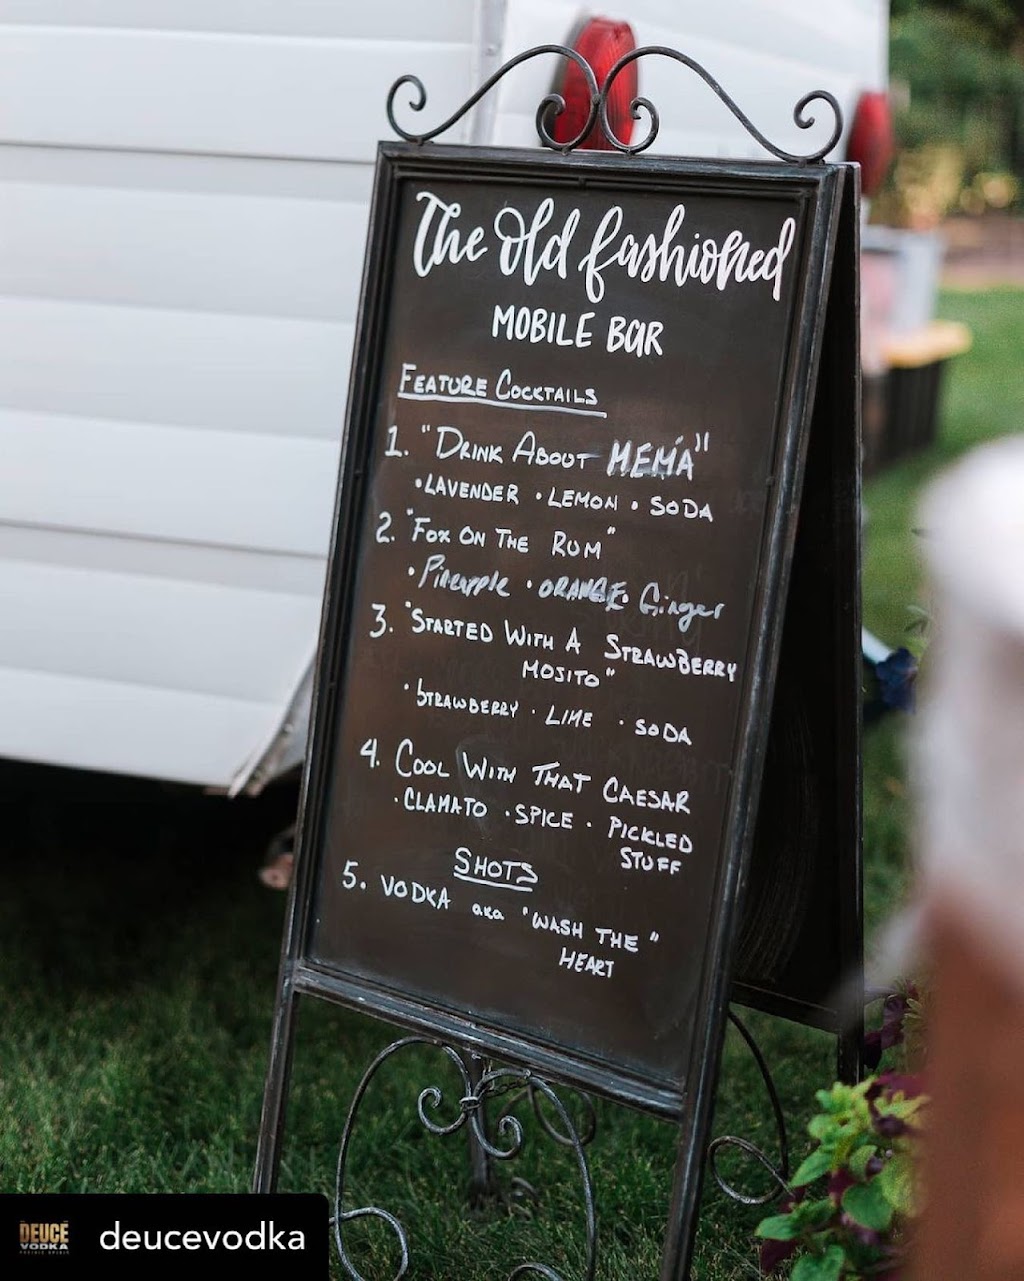 The Old Fashioned
MOBILE BAR
FEATURE COCKTAILS
1. "DRINK ABOUT MEMA"
• LAVENDER • LEMON • SODA
2. "FOX ON THE RUM"
• Pineapple • ORANGE • Ginger
3. "STARTED WITH A STRAWBERRY
MOJITO"
• STRAWBERRY • LIME • SODA
4. COOL WITH THAT CAESAR
• CLAMATO • SPICE • PICKLED
STUFF
SHOTS
5. VODKA aka "WASH THE"
HEART
DEUCE
VODKA
deucevodka